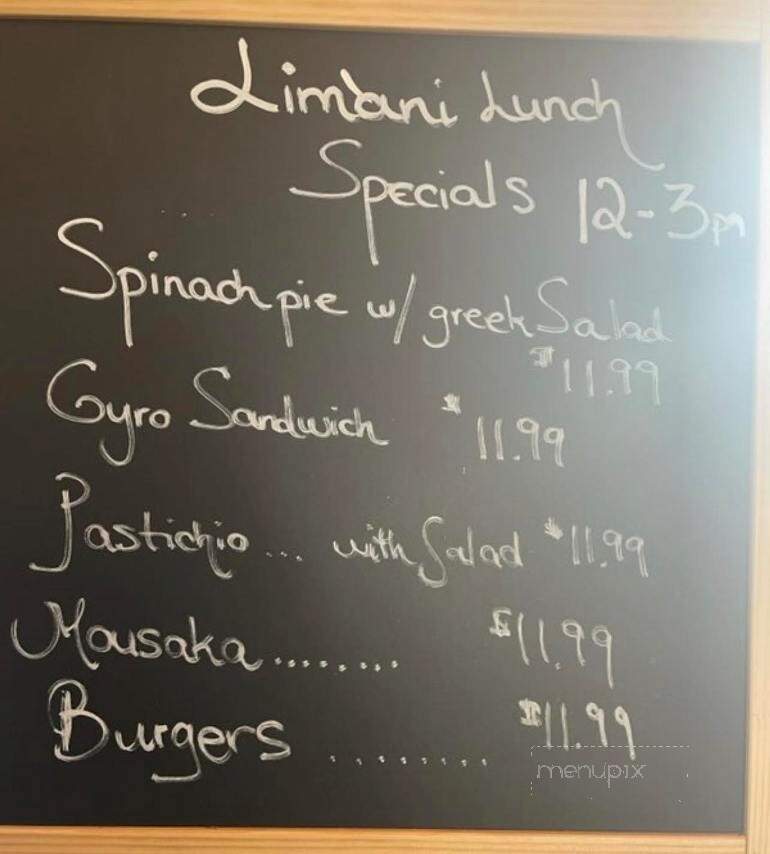 Limani Lunch
Specials 12-3pm
Spinach pie w/ greek Salad
$11.99
Gyro Sandwich $11.99
Pastichio ... with Salad $11.99
Mousaka ........ $11.99
Burgers ......... $11.99
menupix